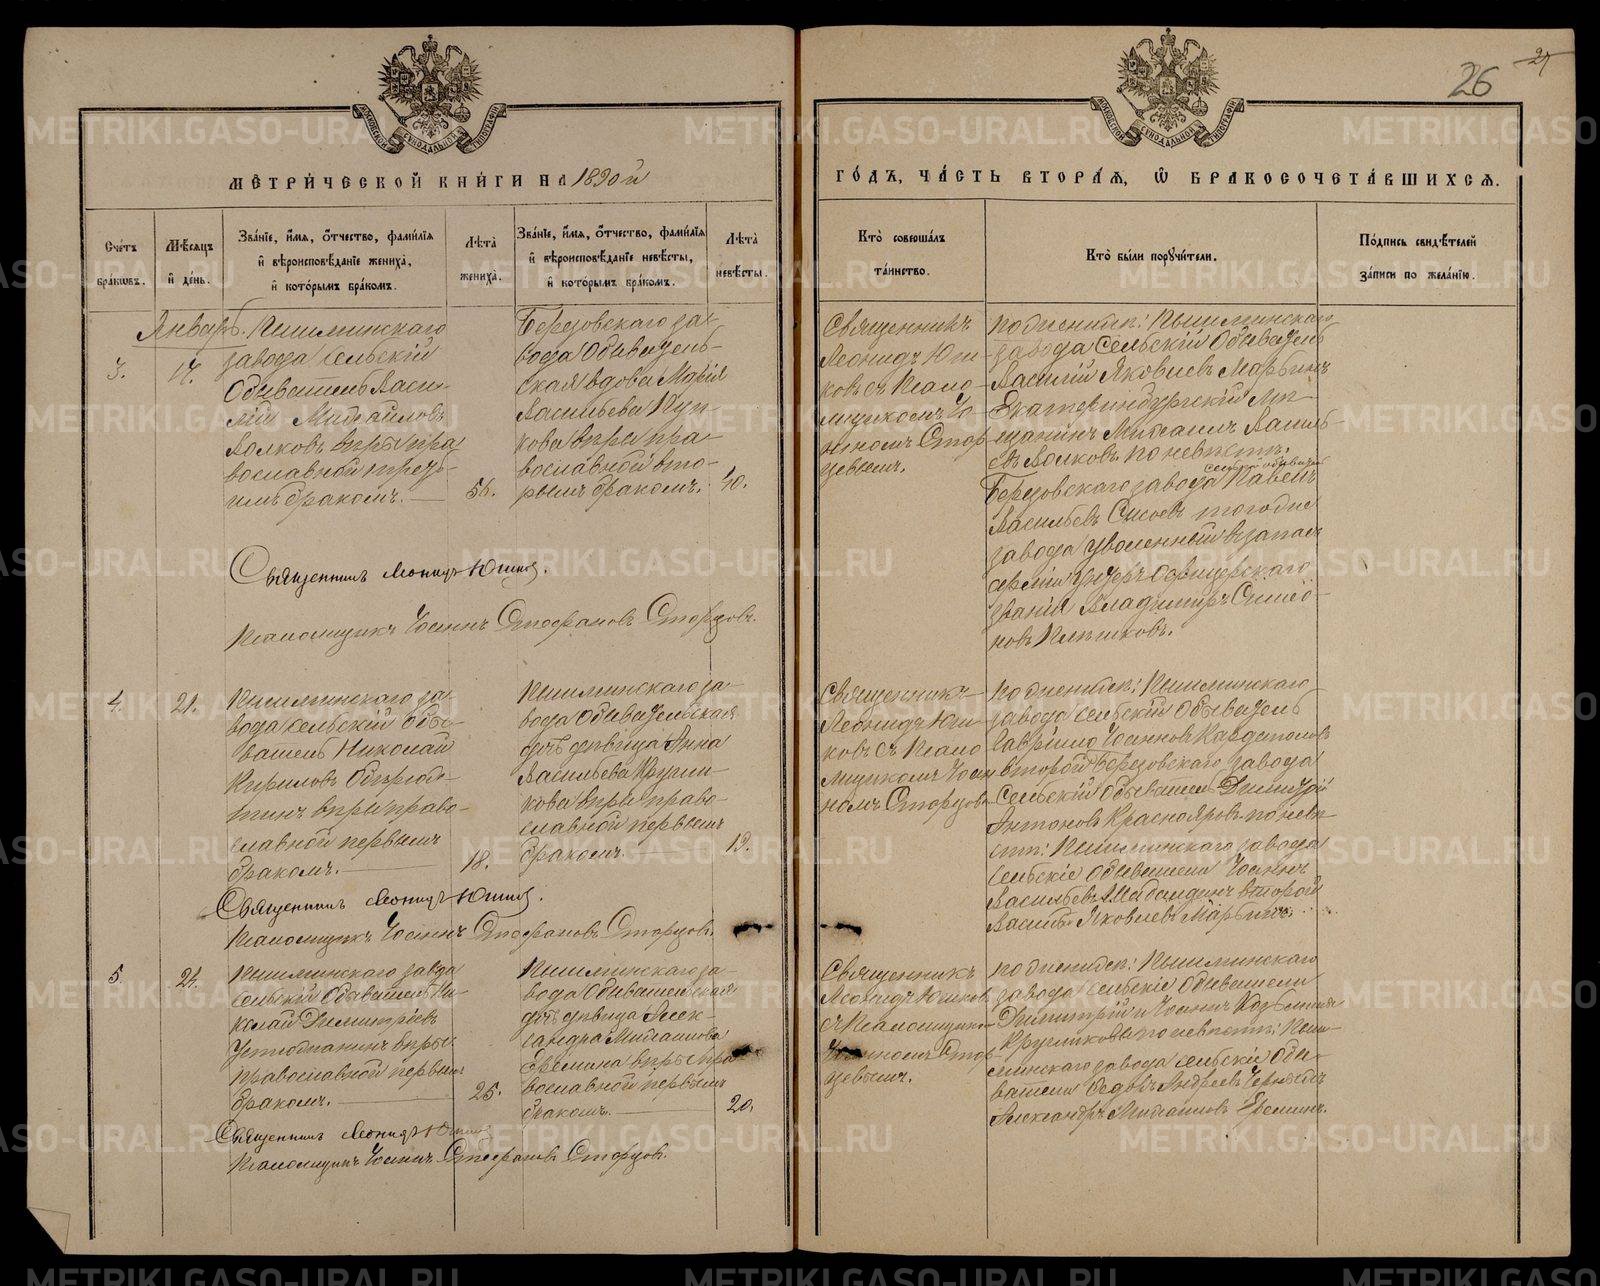 26
МЕТРИ́ЧЕСКОЙ КНИ́ГИ НА 1890 й
ГО́ДЪ, ЧА́СТЬ ВТОРА́Я, Ѡ БРАКОСОЧЕТА́ВШИХСЯ.
Счетъ браковъ.
Мѣсяцъ и день.
Зва́нїе, и́мя, о́тчество, фами́лїя и вѣроисповѣ́данїе жениха̀, и кото́рымъ бра́комъ.
Лѣта̀ жениха̀.
Зва́нїе, и́мя, о́тчество, фами́лїя и вѣроисповѣ́данїе невѣ́сты, и кото́рымъ бра́комъ.
Лѣта̀ невѣ́сты.
Кто̀ соверша́лъ та́инство.
Кто̀ бы́ли поручи́тели.
По́дпись свидѣ́телей за́писи по жела́нїю.
Январь.
3.
17.
Пышминскаго
завода сельскій
обыватель Васи-
лій Михайловъ
Волковъ вѣры пра
вославной треть-
имъ бракомъ.
56.
Березовскаго за-
вода обыватель-
ская вдова Марія
Васильева
кова вѣры пра-
вославной вто-
рымъ бракомъ.
40.
Священникъ
Леонидъ Юш-
ковъ съ Псало-
мщикомъ Іо-
анномъ Стор-
цевымъ.
по женихѣ: Пышминскаго
завода сельскій обыватель
Василій Яковлевъ
Екатеринбургскій мѣ-
щанинъ Михаилъ Василь-
евъ Волковъ по невѣстѣ:
сельскій обыватель
Березовскаго завода Павелъ
Васильевъ тогоже
завода уволенный въ запасъ
арміи унтеръ офицерскаго
званія Владимиръ Симео-
новъ
Священникъ Леонидъ Юшковъ.
Псаломщикъ Іоаннъ Стефановъ Сторцовъ.
4.
21.
Пышминскаго за-
вода сельскій обы-
ватель Николай
Кириловъ
вѣры право-
славной первымъ
бракомъ.
18.
Пышминскаго за-
вода обывательская
дочь дѣвица Анна
Васильева Кругли-
кова вѣры право-
славной первымъ
бракомъ.
19.
Священникъ
Леонидъ Юш-
ковъ съ Псало
мщикомъ Іоан
номъ Сторцовымъ
по женихѣ: Пышминскаго
завода сельскій обыватель
Гавріилъ Іоанновъ
второй Березовскаго завода
сельскій обыватель Димитрій
Антоновъ Краснояровъ по невѣ-
стѣ: Пышминскаго завода
сельскіе обыватели Іоаннъ
Васильевъ Шабалдинъ второй
Василій Яковлевъ
Священникъ Леонидъ Юшковъ.
Псаломщикъ Іоаннъ Стефановъ Сторцовъ.
5.
24.
Пышминскаго завода
сельскій обыватель Ни-
колай Димитріевъ
Устюжанинъ вѣры
православной первымъ
бракомъ.
25.
Пышминскаго за-
вода обывательская
дочь дѣвица Алек-
сандра Михаилова
Еремина вѣры пра-
вославной первымъ
бракомъ.
20.
Священникъ
Леонидъ Юшковъ
съ Псаломщикомъ
Іоанномъ Стор-
цевымъ.
по женихѣ: Пышминскаго
завода сельскіе обыватели
Димитрій и Іоаннъ Козьмины
Кругликовы по невѣстѣ: Пыш-
минскаго завода сельскіе обы-
ватели Ѳедоръ Андреевъ
Александръ Михаиловъ Ереминъ.
Священникъ Леонидъ Юшковъ
Псаломщикъ Іоаннъ Стефановъ Сторцовъ.
METRIKI.GASO-URAL.RU